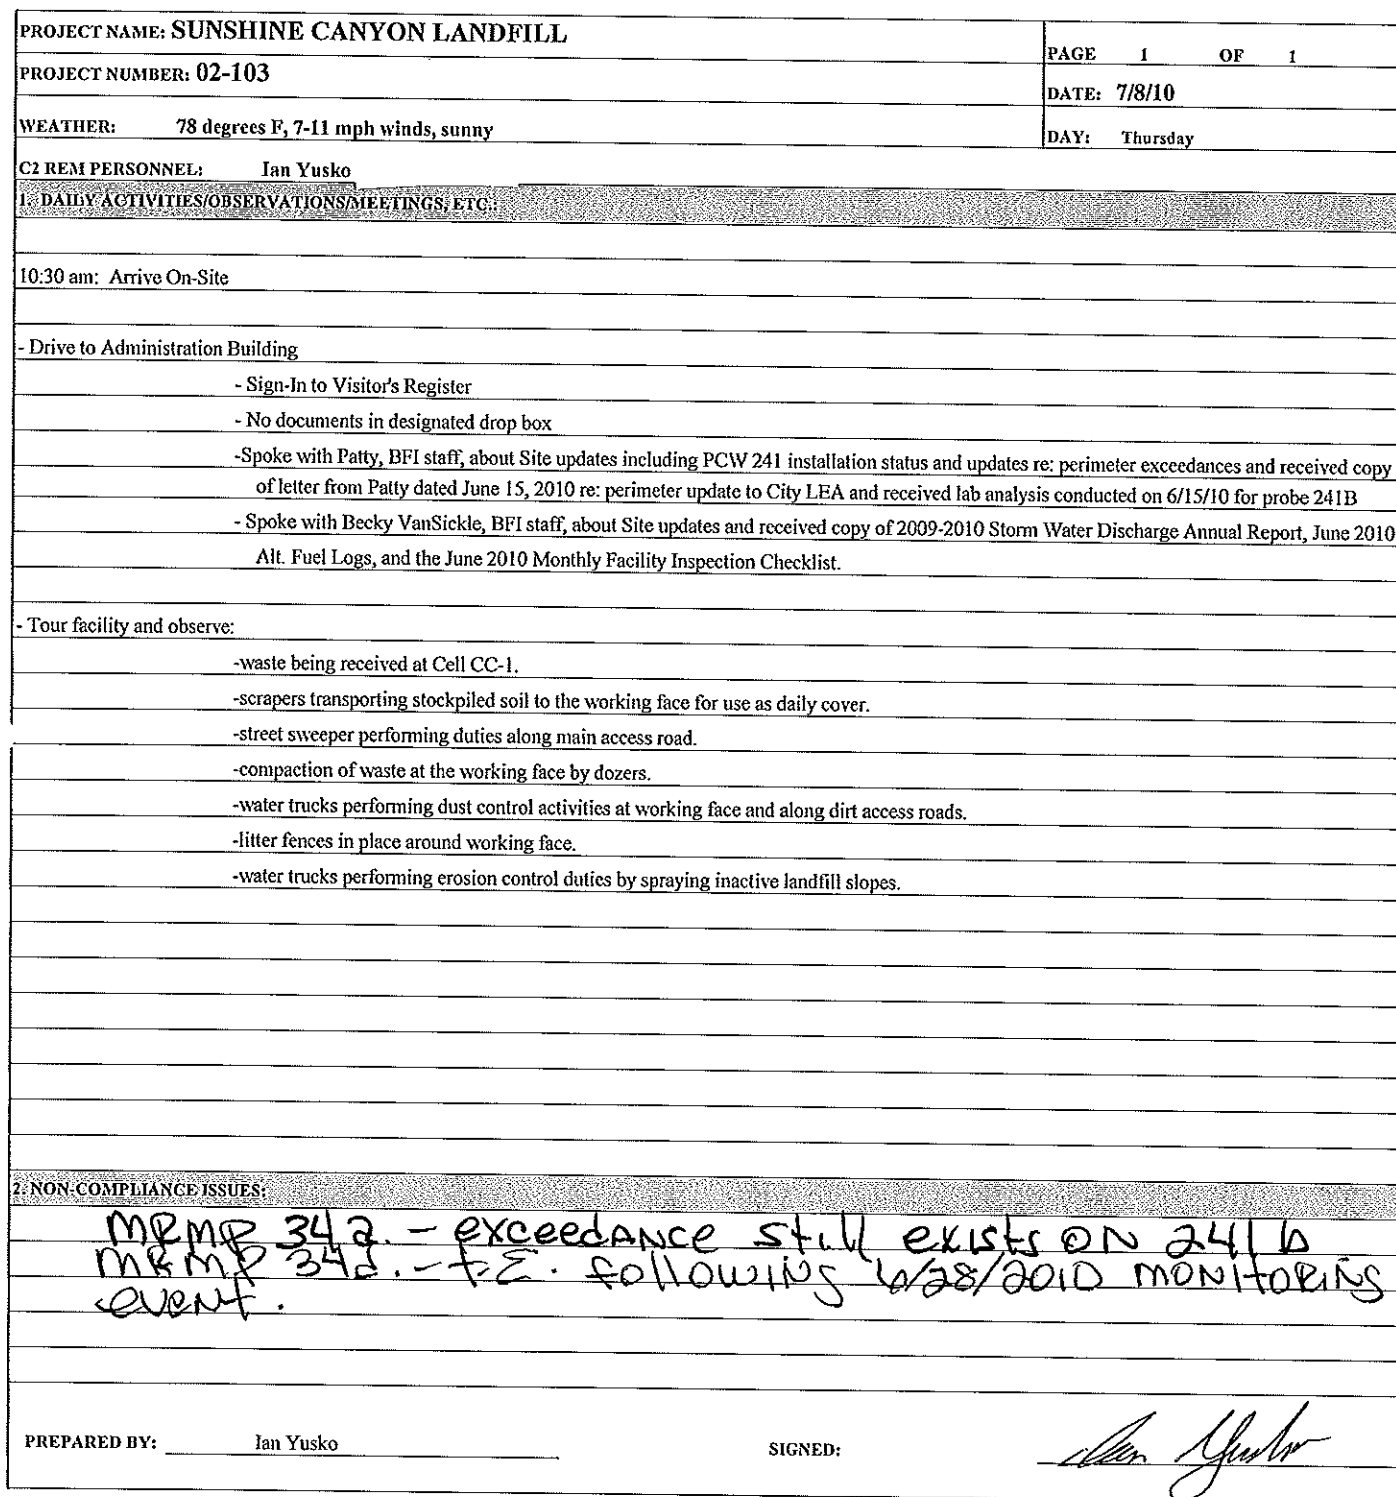 PROJECT NAME: SUNSHINE CANYON LANDFILL
PAGE 1 OF 1
PROJECT NUMBER: 02-103
DATE: 7/8/10
WEATHER: 78 degrees F, 7-11 mph winds, sunny
DAY: Thursday
C2 REM PERSONNEL: Ian Yusko
1. DAILY ACTIVITIES/OBSERVATIONS/MEETINGS, ETC.:
10:30 am: Arrive On-Site
- Drive to Administration Building
- Sign-In to Visitor's Register
- No documents in designated drop box
-Spoke with Patty, BFI staff, about Site updates including PCW 241 installation status and updates re: perimeter exceedances and received copy
of letter from Patty dated June 15, 2010 re: perimeter update to City LEA and received lab analysis conducted on 6/15/10 for probe 241B
- Spoke with Becky VanSickle, BFI staff, about Site updates and received copy of 2009-2010 Storm Water Discharge Annual Report, June 2010
Alt. Fuel Logs, and the June 2010 Monthly Facility Inspection Checklist.
- Tour facility and observe:
-waste being received at Cell CC-1.
-scrapers transporting stockpiled soil to the working face for use as daily cover.
-street sweeper performing duties along main access road.
-compaction of waste at the working face by dozers.
-water trucks performing dust control activities at working face and along dirt access roads.
-litter fences in place around working face.
-water trucks performing erosion control duties by spraying inactive landfill slopes.
2. NON-COMPLIANCE ISSUES:
MRMP 342. - exceedance still exists on 241b
MRMP 342. - following 6/28/2010 monitoring
event.
PREPARED BY: Ian Yusko
SIGNED: Ian Yusko